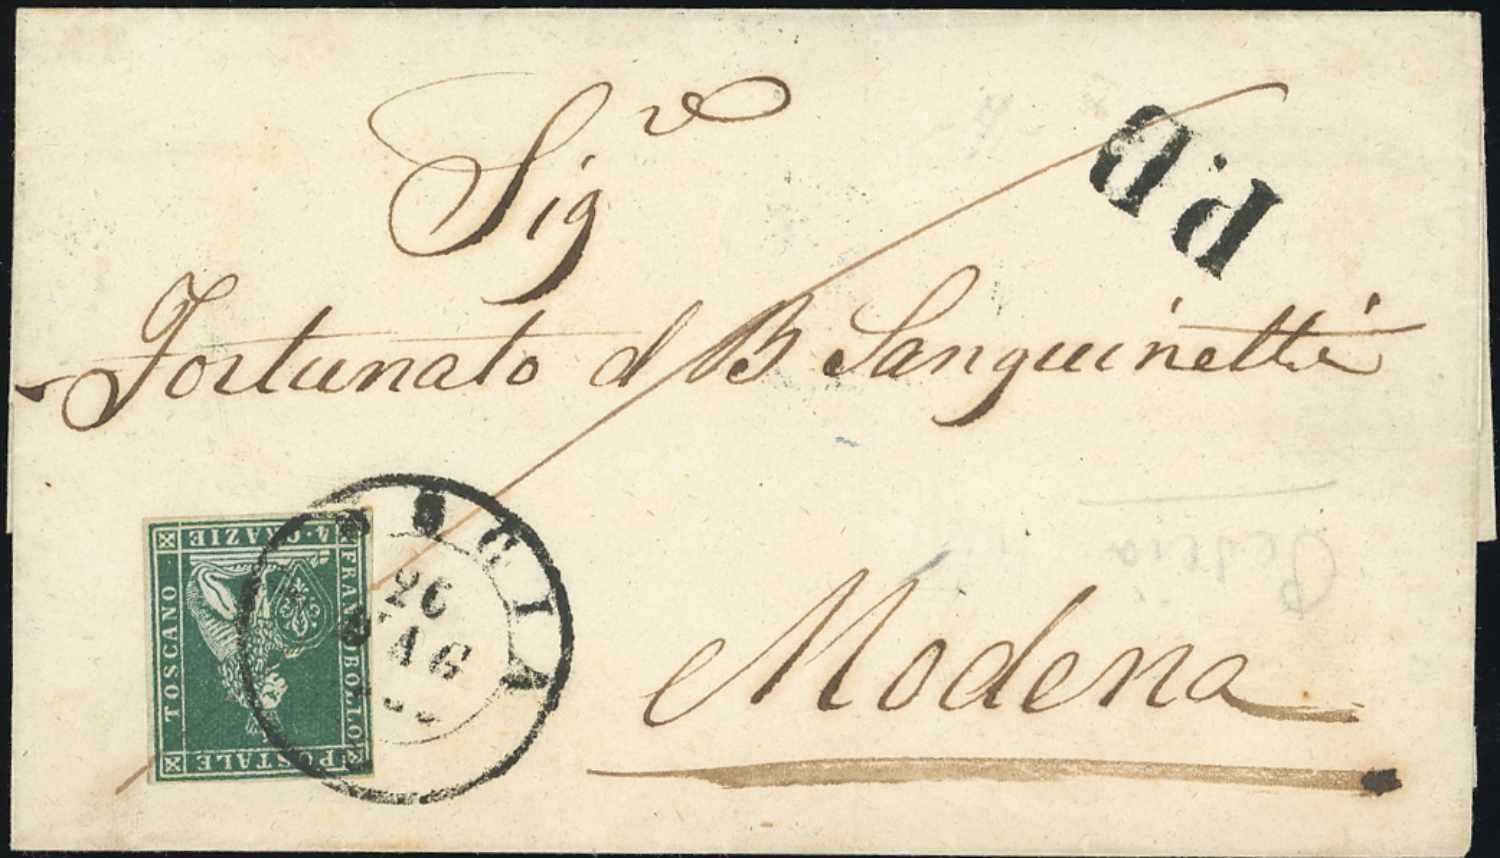 Sigr
P.D
Fortunato d B Sanguinetti
FRANCOBOLLO
POSTALE
TOSCANO
4·CRAZIE
PESCIA
26
AG
Modena